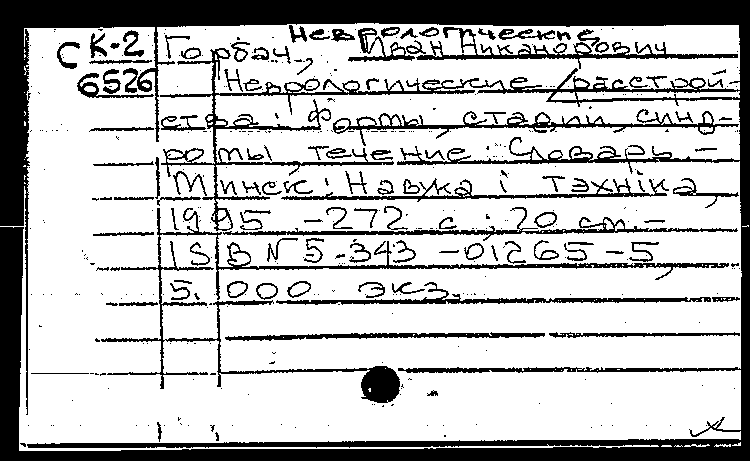 Неврологические
С К-2 Горбач, Иван Никанорович
6526 Неврологические расстрой-
ства: Формы, стадии, синд-
ромы, течение: Словарь. -
Минск: Навука і тэхніка,
1995 - 272 с.; 20 см. -
ISBN 5-343-01265-5,
5.000 экз.